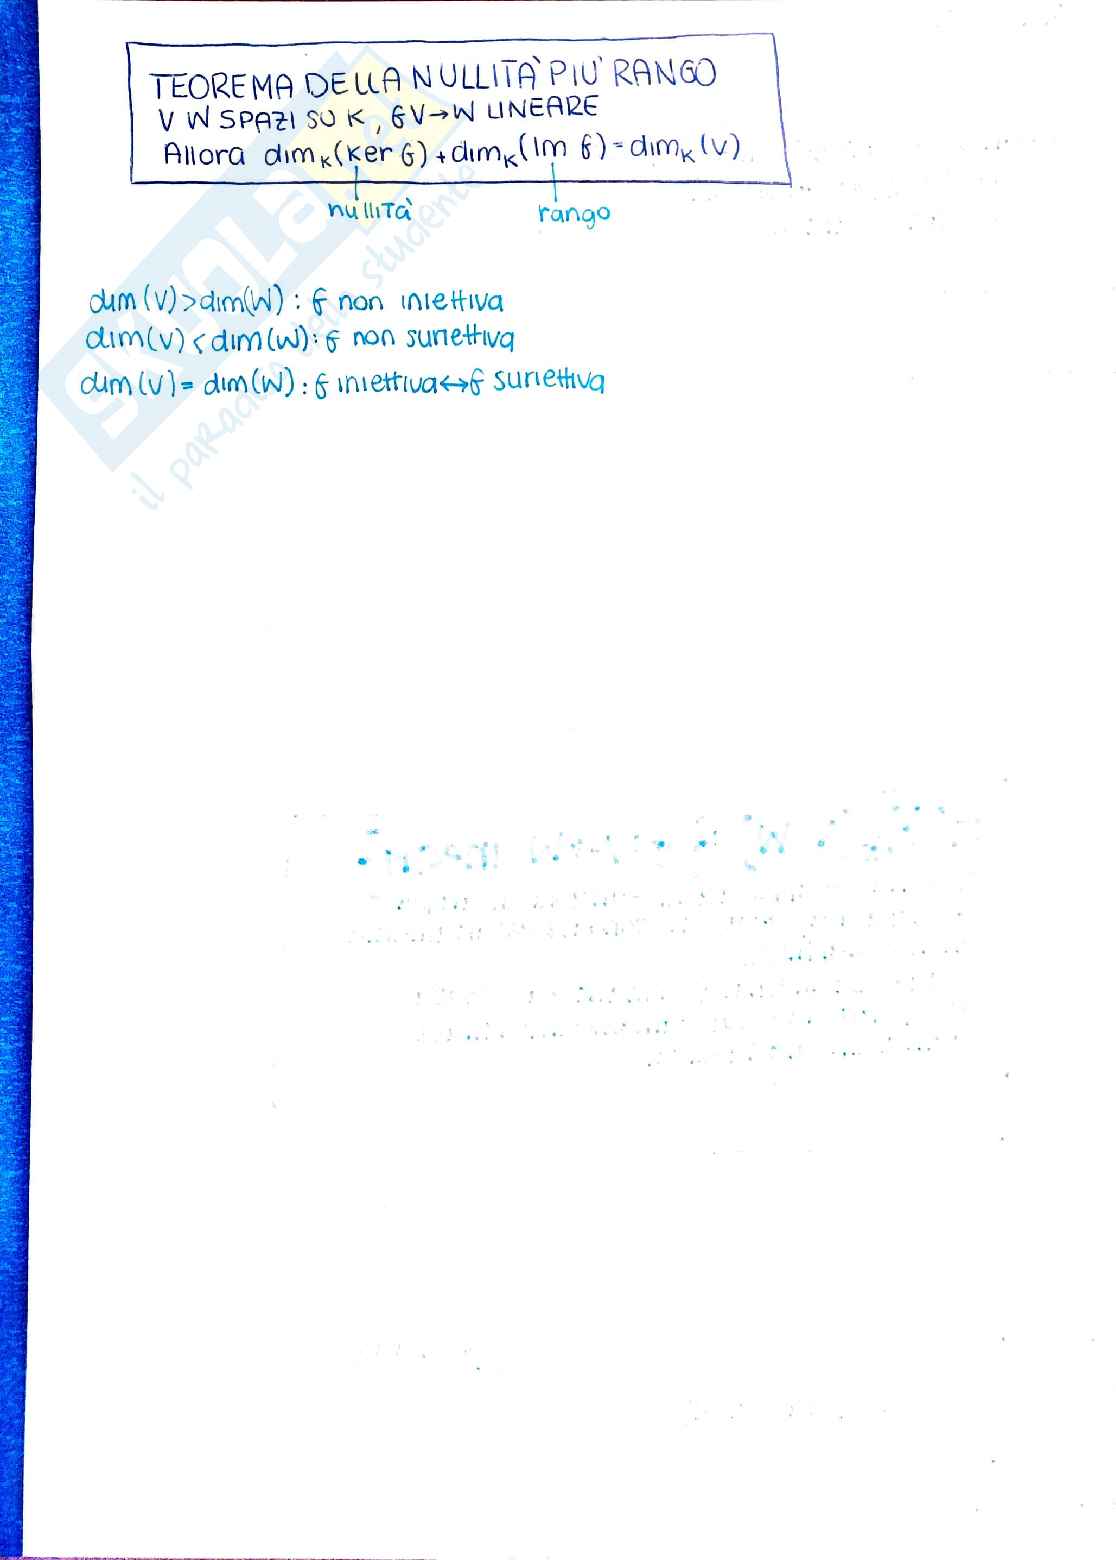 TEOREMA DELLA NULLITÀ PIU' RANGO
V W SPAZI SU K, f V→W LINEARE
Allora dim_K(Ker f) + dim_K(Im f) = dim_K(V)
nullità rango
dim(V)>dim(W): f non iniettiva
dim(V)<dim(W): f non suriettiva
dim(V)= dim(W): f iniettiva↔f suriettiva
SKUOLA.net
il paradiso dello studente